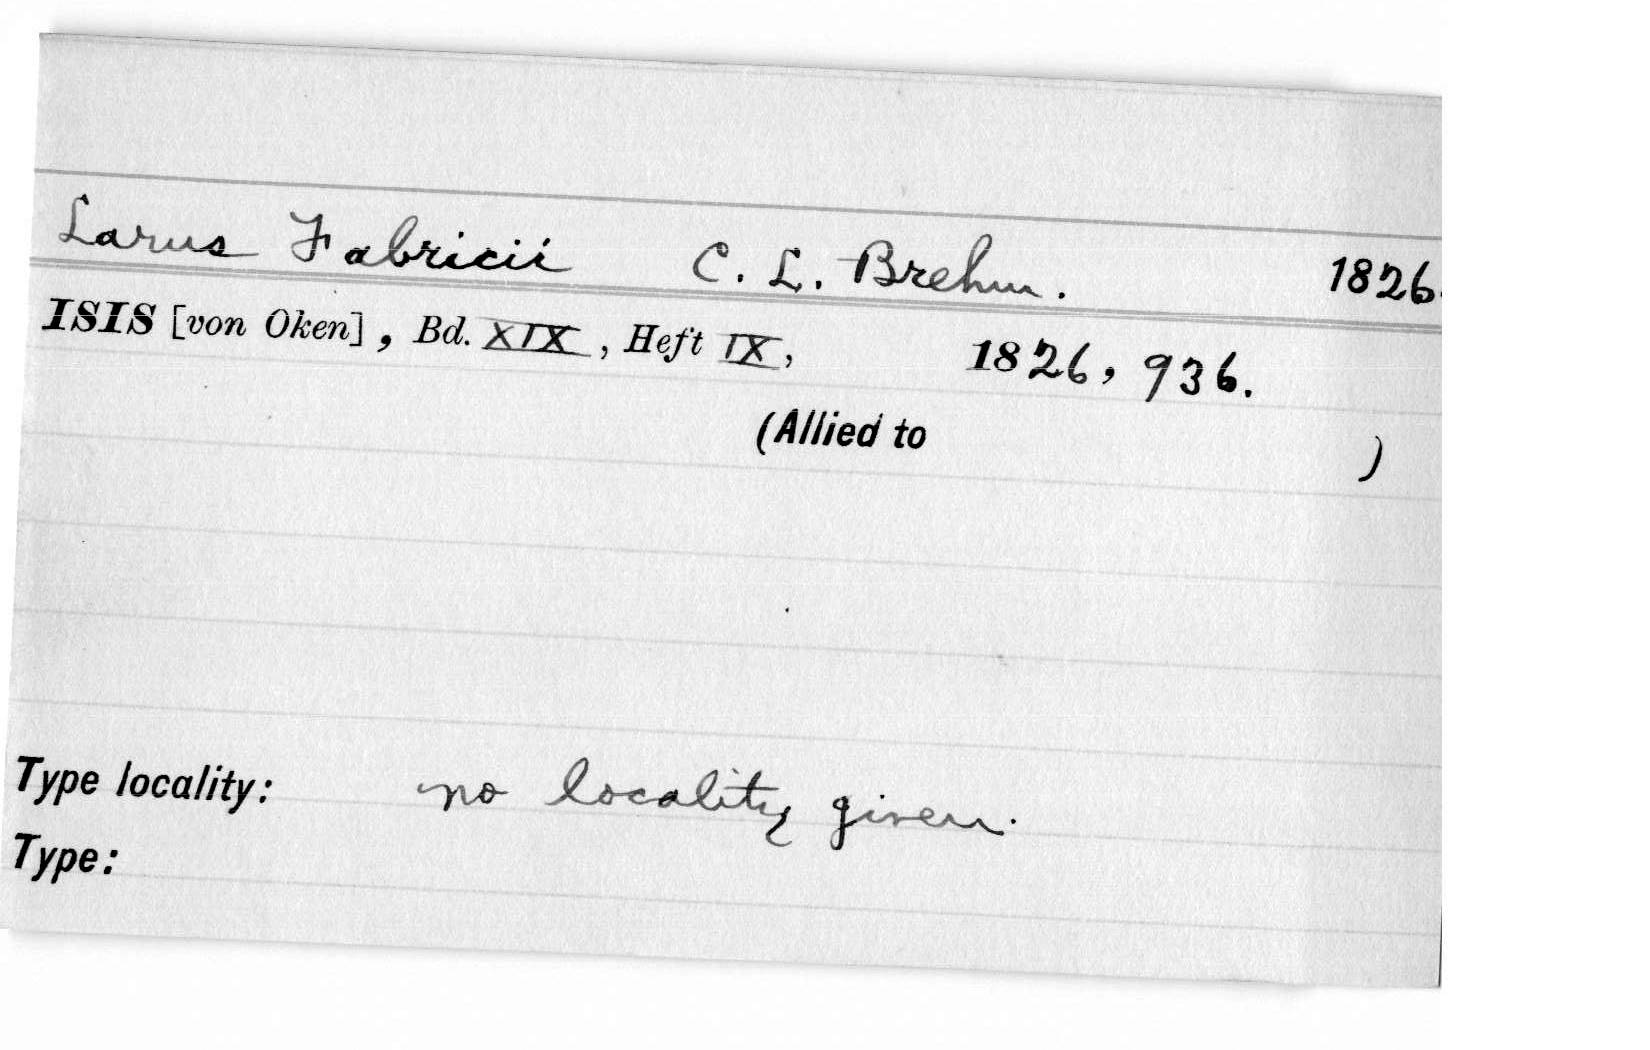 Larus Fabricii C. L. Brehm. 1826.
ISIS [von Oken], Bd. XIX, Heft IX, 1826, 936.
(Allied to )
Type locality: no locality given.
Type: